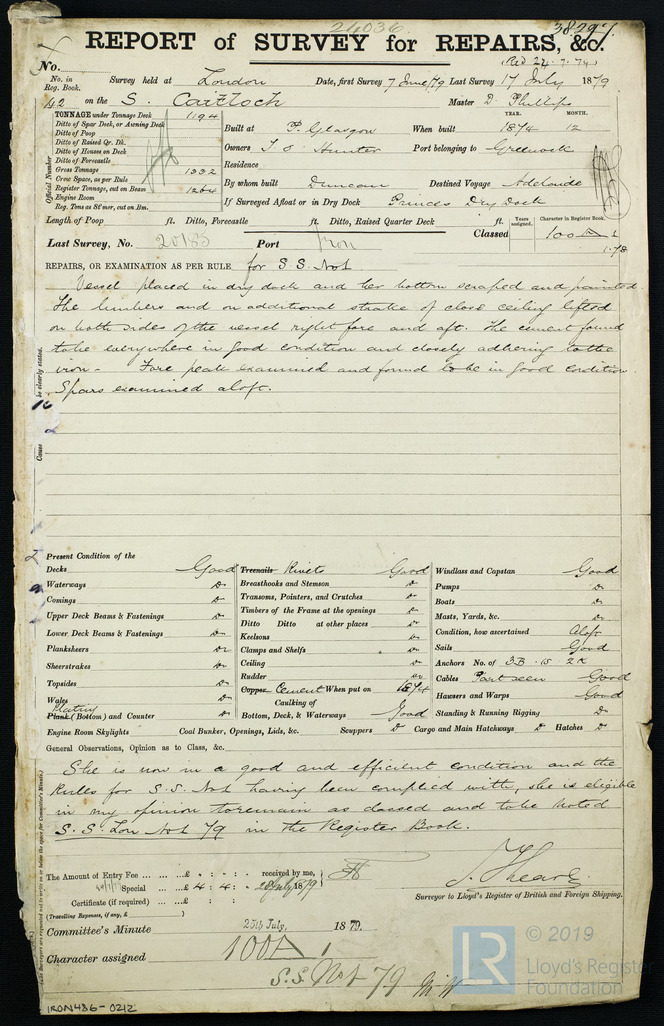 24036
38297
REPORT of SURVEY for REPAIRS, &c.
No.
(Red 24.7.79)
No. in Reg. Book. Survey held at London Date, first Survey 7 June/79 Last Survey 17 July 1879
42 on the S. Cartloch Master D. Phillips
TONNAGE under Tonnage Deck 1194
Ditto of Spar Deck, or Awning Deck
Ditto of Poop
Ditto of Raised Qr. Dk.
Ditto of Houses on Deck
Ditto of Forecastle
Gross Tonnage 1332
Crew Space, as per Rule
Register Tonnage, cut on Beam 1264
Engine Room
Reg. Tons as St'mer, cut on Bm.
Official Number
YEAR. MONTH.
Built at P. Glasgow When built 1874 12
Owners T O Hunter Port belonging to Greenock
Residence
By whom built Duncan Destined Voyage Adelaide
If Surveyed Afloat or in Dry Dock Princes Dry Dock
Length of Poop ft. Ditto, Forecastle ft. Ditto, Raised Quarter Deck ft.
Years assigned. Character in Register Book.
Classed 100 A 1
1.78
Last Survey, No. 20185 Port Iron
REPAIRS, OR EXAMINATION AS PER RULE for S.S. No 1
Vessel placed in dry dock and her bottom scraped and painted.
The limbers and an additional strake of close ceiling lifted
on both sides of the vessel right fore and aft. The cement found
to be everywhere in good condition and closely adhering to the
iron - Fore peak examined and found to be in good condition.
Spars examined aloft.
be clearly stated.
Present Condition of the
Decks Good
Waterways Do
Comings Do
Upper Deck Beams & Fastenings Do
Lower Deck Beams & Fastenings Do
Planksheers Do
Sheerstrakes Do
Topsides Do
Wales Do
Plating
Plank (Bottom) and Counter Do
Treenails Rivets Good
Breasthooks and Stemson Do
Transoms, Pointers, and Crutches Do
Timbers of the Frame at the openings Do
Ditto Ditto at other places Do
Keelsons Do
Clamps and Shelfs Do
Ceiling Do
Rudder Do
Copper Cement When put on 1874
Caulking of
Bottom, Deck, & Waterways Good
Windlass and Capstan Good
Pumps Do
Boats Do
Masts, Yards, &c. Do
Condition, how ascertained Aloft
Sails Good
Anchors No. of 3B. 1S 2K
Cables Part seen Good
Hawsers and Warps Good
Standing & Running Rigging Do
Engine Room Skylights Coal Bunker, Openings, Lids, &c. Scuppers Do Cargo and Main Hatchways Do Hatches Do
General Observations, Opinion as to Class, &c.
She is now in a good and efficient condition and the
Rules for S.S. No 1 having been complied with, she is eligible
in my opinion to remain as classed and to be noted
S.S. Lon No 1 79 in the Register Book.
The Amount of Entry Fee £ : : received by me,
Special £ 4 : 4 : 28 July 1879
Certificate (if required) £ : :
(Travelling Expenses, if any, £ )
Surveyor to Lloyd's Register of British and Foreign Shipping.
Committee's Minute 25th July, 1879.
Character assigned 100 A 1
S.S. No 1 79
IRON436-0212
LR © 2019
Lloyd's Register
Foundation